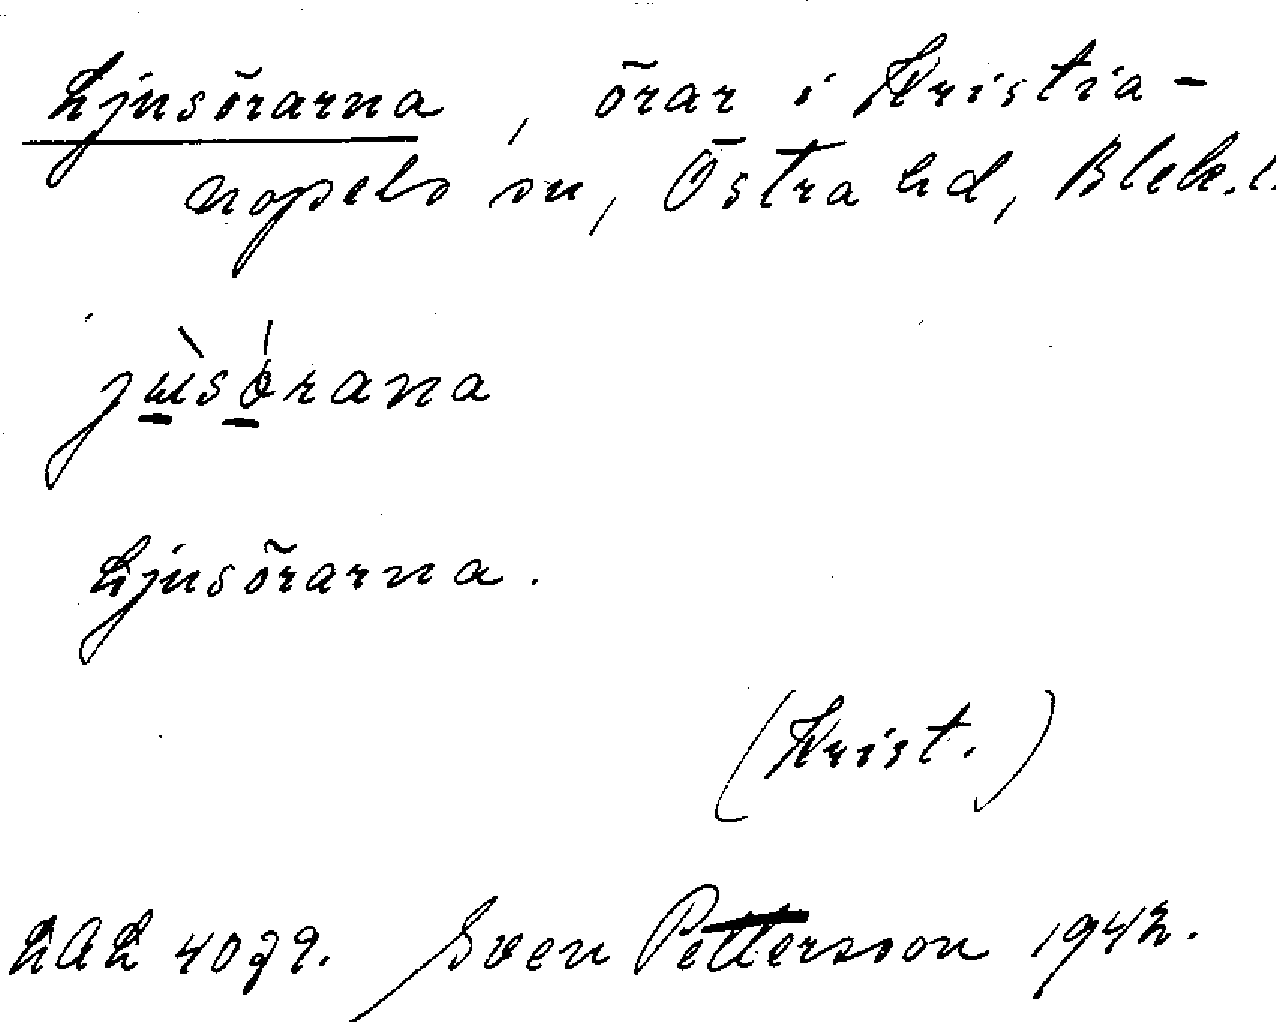 Ljusörarna, örar i Kristia-
nopels sn, Östra hd, Blek. l.
jùsǿrana
Ljusörarna.
(Krist.)
LAL 4079. Sven Pettersson 1942.